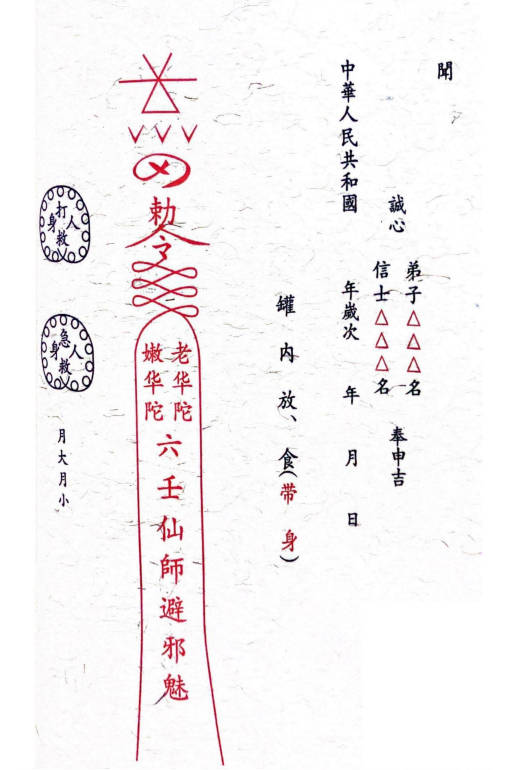 聞
誠心
弟子△△△名
信士△△△名
奉申吉
中華人民共和國 年歲次 年 月 日
罐内放、食(带身)
勅令
老华陀
嫩华陀
六壬仙師避邪魅
打人救身
急人救身
月大月小